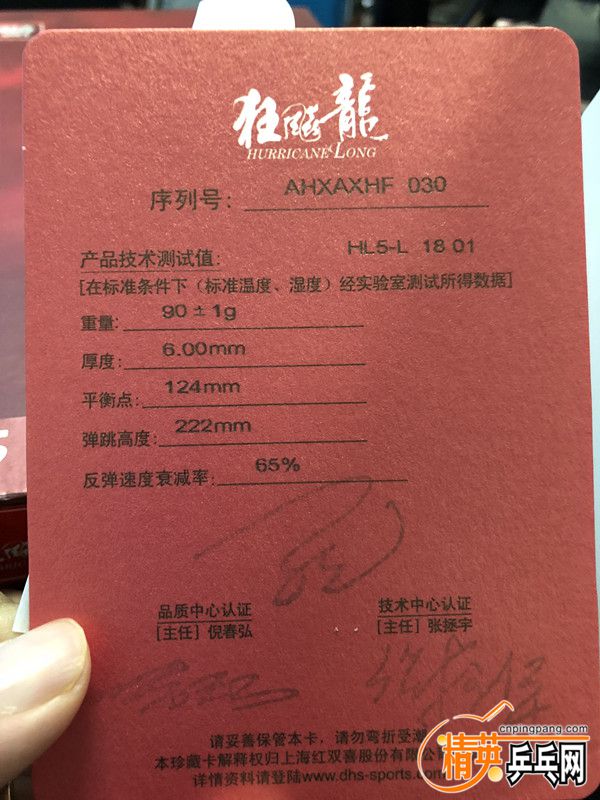 狂飚龍
HURRICANE LONG
序列号: AHXAXHF 030
产品技术测试值: HL5-L 18 01
[在标准条件下（标准温度、湿度）经实验室测试所得数据]
重量: 90±1g
厚度: 6.00mm
平衡点: 124mm
弹跳高度: 222mm
反弹速度衰减率: 65%
品质中心认证
[主任] 倪春弘
技术中心认证
[主任] 张拯宇
请妥善保管本卡，请勿弯折受潮
本珍藏卡解释权归上海红双喜股份有限公司
详情资料请登陆www.dhs-sports.com
cnpingpang.com
精英乒乓网